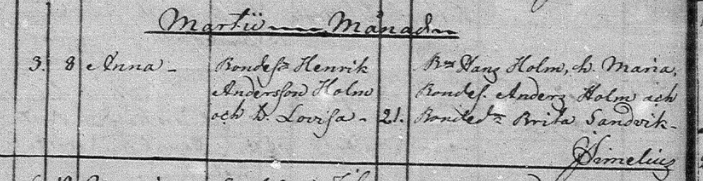 Martii Månad
3. 8 Anna - Bondes. Henrik Bn Hans Holm, h. Maria,
Andersson Holm Bondes. Anders Holm och
och h. Lovisa - 21. Bonded. Brita Sandvik -
Simelius